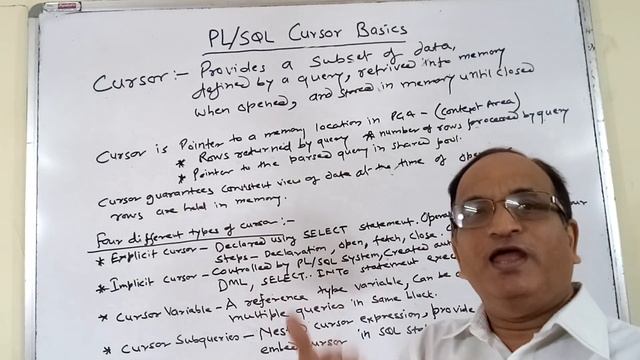 PL/SQL Cursor Basics
Cursor :- Provides a subset of data,
defined by a query, retrived into memory
when opened, and stored in memory until closed
Cursor is Pointer to a memory location in PGA - (Context Area)
* Rows returned by query * number of rows processed by query
* Pointer to the parsed query in shared pool.
Cursor guarantees consistent view of data at the time of
rows are held in memory.
Four different types of cursor:-
* Explicit cursor - Declared using SELECT statement.
steps - Declaration, open, fetch, close.
* Implicit cursor - Controlled by PL/SQL System, Created
DML, SELECT.. INTO statement
* Cursor Variable - A reference type variable, Can be
multiple queries in same block.
* Cursor Subqueries - cursor expression, provide
cursor in SQL